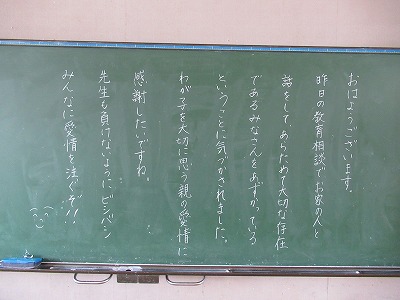 おはようございます。
昨日の教育相談でお家の人と
話をして、あらためて大切な存在
であるみなさんをあずかっている
ということに気づかされました。
わが子を大切に思う親の愛情に
感謝したいですね。
先生も負けないようにビシバシ
みんなに愛情を注ぐぞ!!